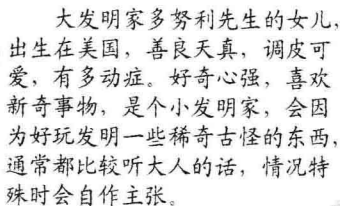 大发明家多努利先生的女儿，
出生在美国，善良天真，调皮可
爱，有多动症。好奇心强，喜欢
新奇事物，是个小发明家，会因
为好玩发明一些稀奇古怪的东西，
通常都比较听大人的话，情况特
殊时会自作主张。